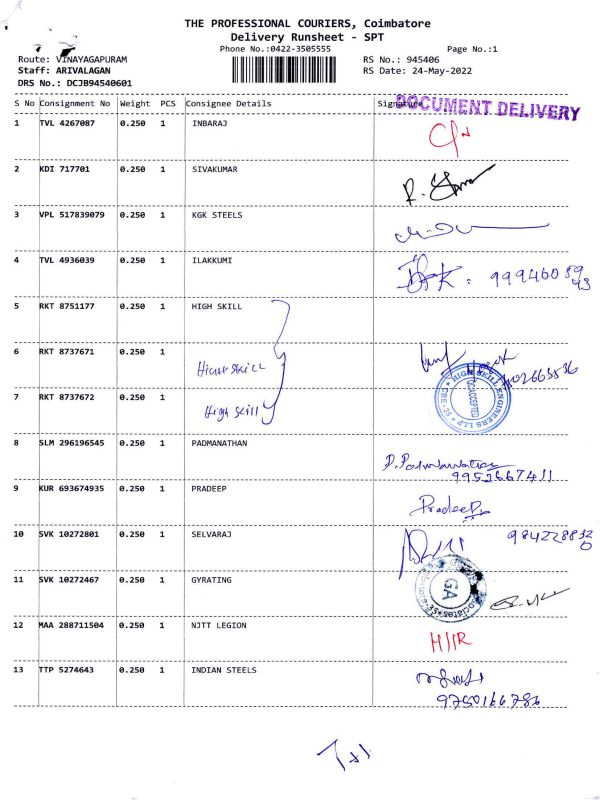 THE PROFESSIONAL COURIERS, Coimbatore
Delivery Runsheet - SPT
Phone No.:0422-3505555
Page No.:1
Route: VINAYAGAPURAM
RS No.: 945406
Staff: ARIVALAGAN
RS Date: 24-May-2022
DRS No.: DCJB94540601
S No Consignment No Weight PCS Consignee Details Signature
DOCUMENT DELIVERY
1 TVL 4267087 0.250 1 INBARAJ
2 KDI 717701 0.250 1 SIVAKUMAR
3 VPL 517839079 0.250 1 KGK STEELS
4 TVL 4936039 0.250 1 ILAKKUMI
5 RKT 8751177 0.250 1 HIGH SKILL
6 RKT 8737671 0.250 1
High Skill
7 RKT 8737672 0.250 1
High Skill
HIGH SKILL ENGINEERS LLP
8 SLM 296196545 0.250 1 PADMANATHAN
9 KUR 693674935 0.250 1 PRADEEP
Pradeep
10 SVK 10272801 0.250 1 SELVARAJ
11 SVK 10272467 0.250 1 GYRATING
GA
12 MAA 288711504 0.250 1 NJTT LEGION
13 TTP 5274643 0.250 1 INDIAN STEELS
9750166786